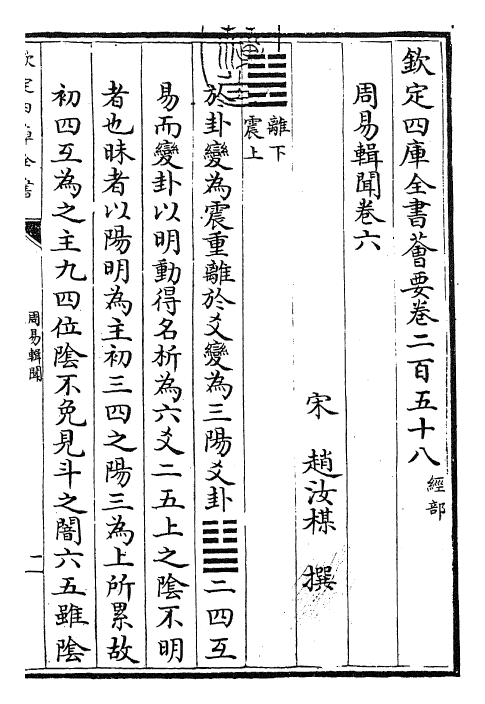 欽定四庫全書薈要卷二百五十八 經部
周易輯聞卷六
宋 趙汝楳 撰
離下
震上
於卦變為震重離於爻變為三陽爻卦䷶二四互
易而變卦以明動得名析為六爻二五上之陰不明
者也昧者以陽明為主初三四之陽三為上所累故
初四互為之主九四位陰不免見斗之闇六五雖陰
欽定四庫全書
周易輯聞
一